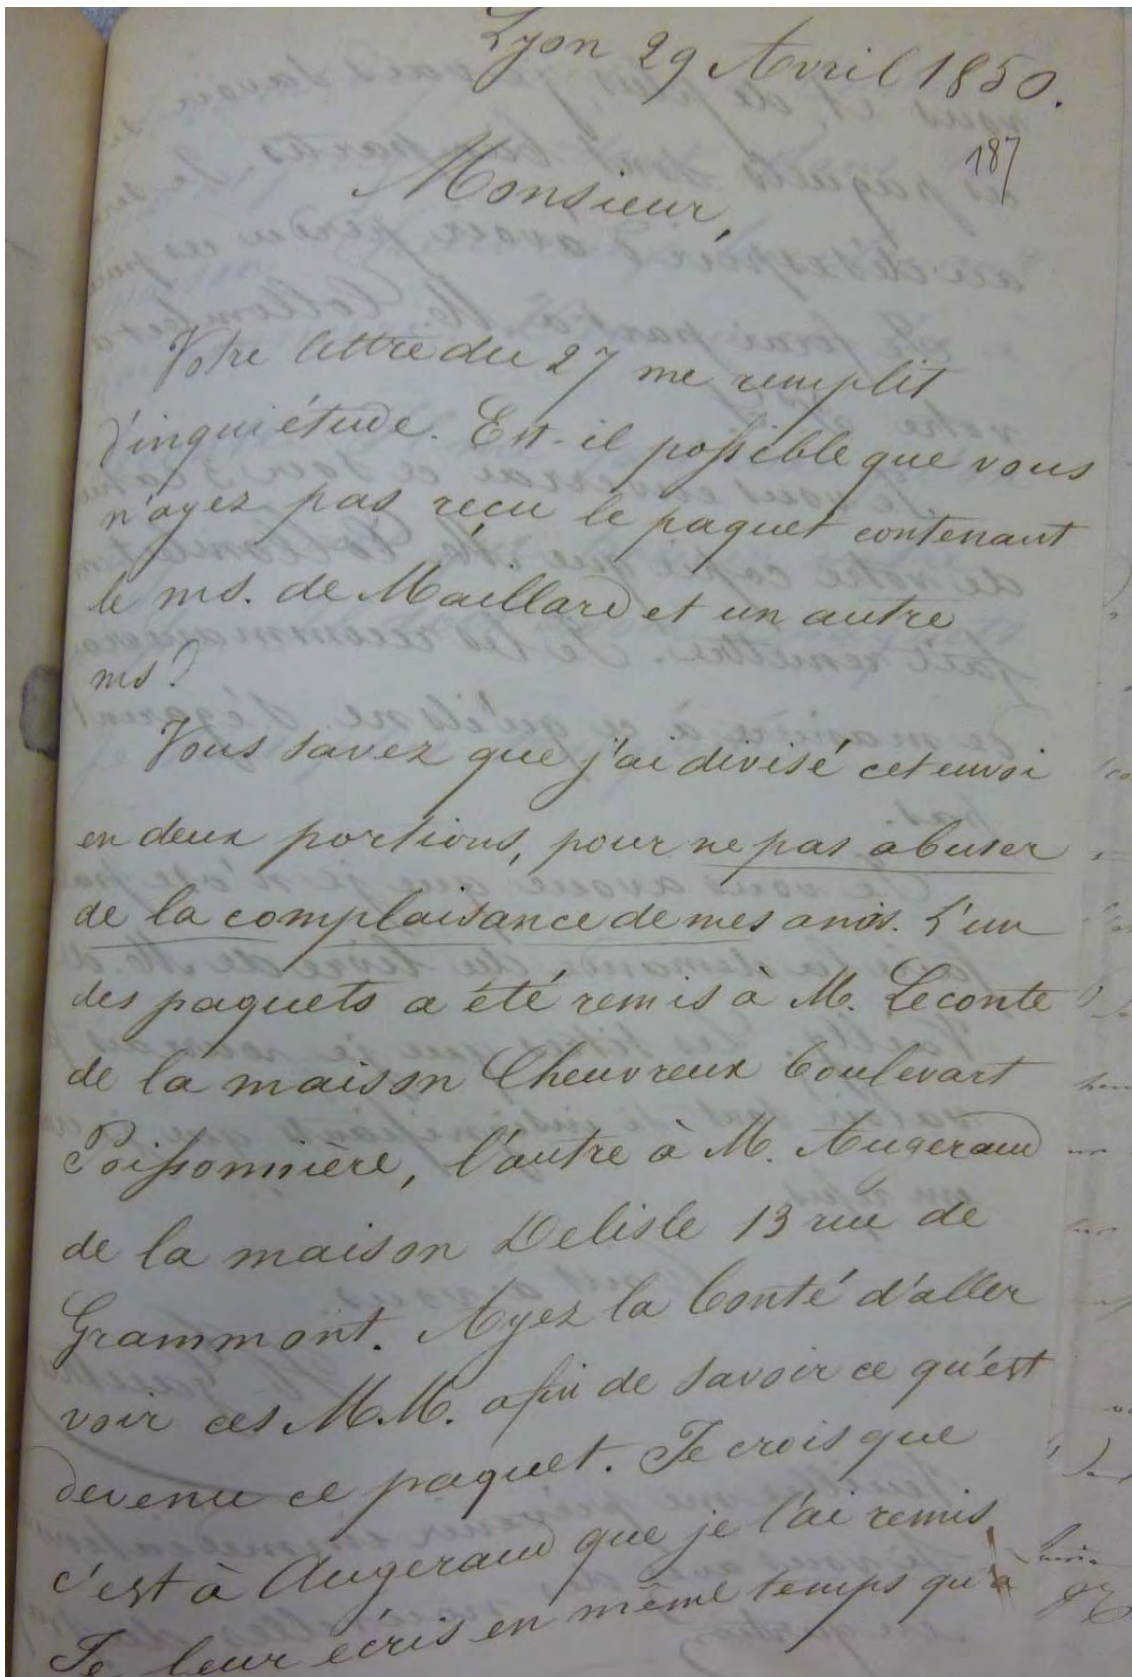 Lyon 29 Avril 1850.
187
Monsieur,
Votre lettre du 27 me remplit
d'inquiétude. Est-il possible que vous
n'ayez pas reçu le paquet contenant
le ms. de Maillard et un autre
ms?
Vous savez que j'ai divisé cet envoi
en deux portions, pour ne pas abuser
de la complaisance de mes amis. L'un
des paquets a été remis à M. Leconte
de la maison Cheuvreux boulevart
Poissonnière, l'autre à M. Augeraud
de la maison Delisle 13 rue de
Grammont. Ayez la bonté d'aller
voir ces M.M. afin de savoir ce qu'est
devenu ce paquet. Je crois que
c'est à Augeraud que je l'ai remis.
Je leur écris en même temps qu'à